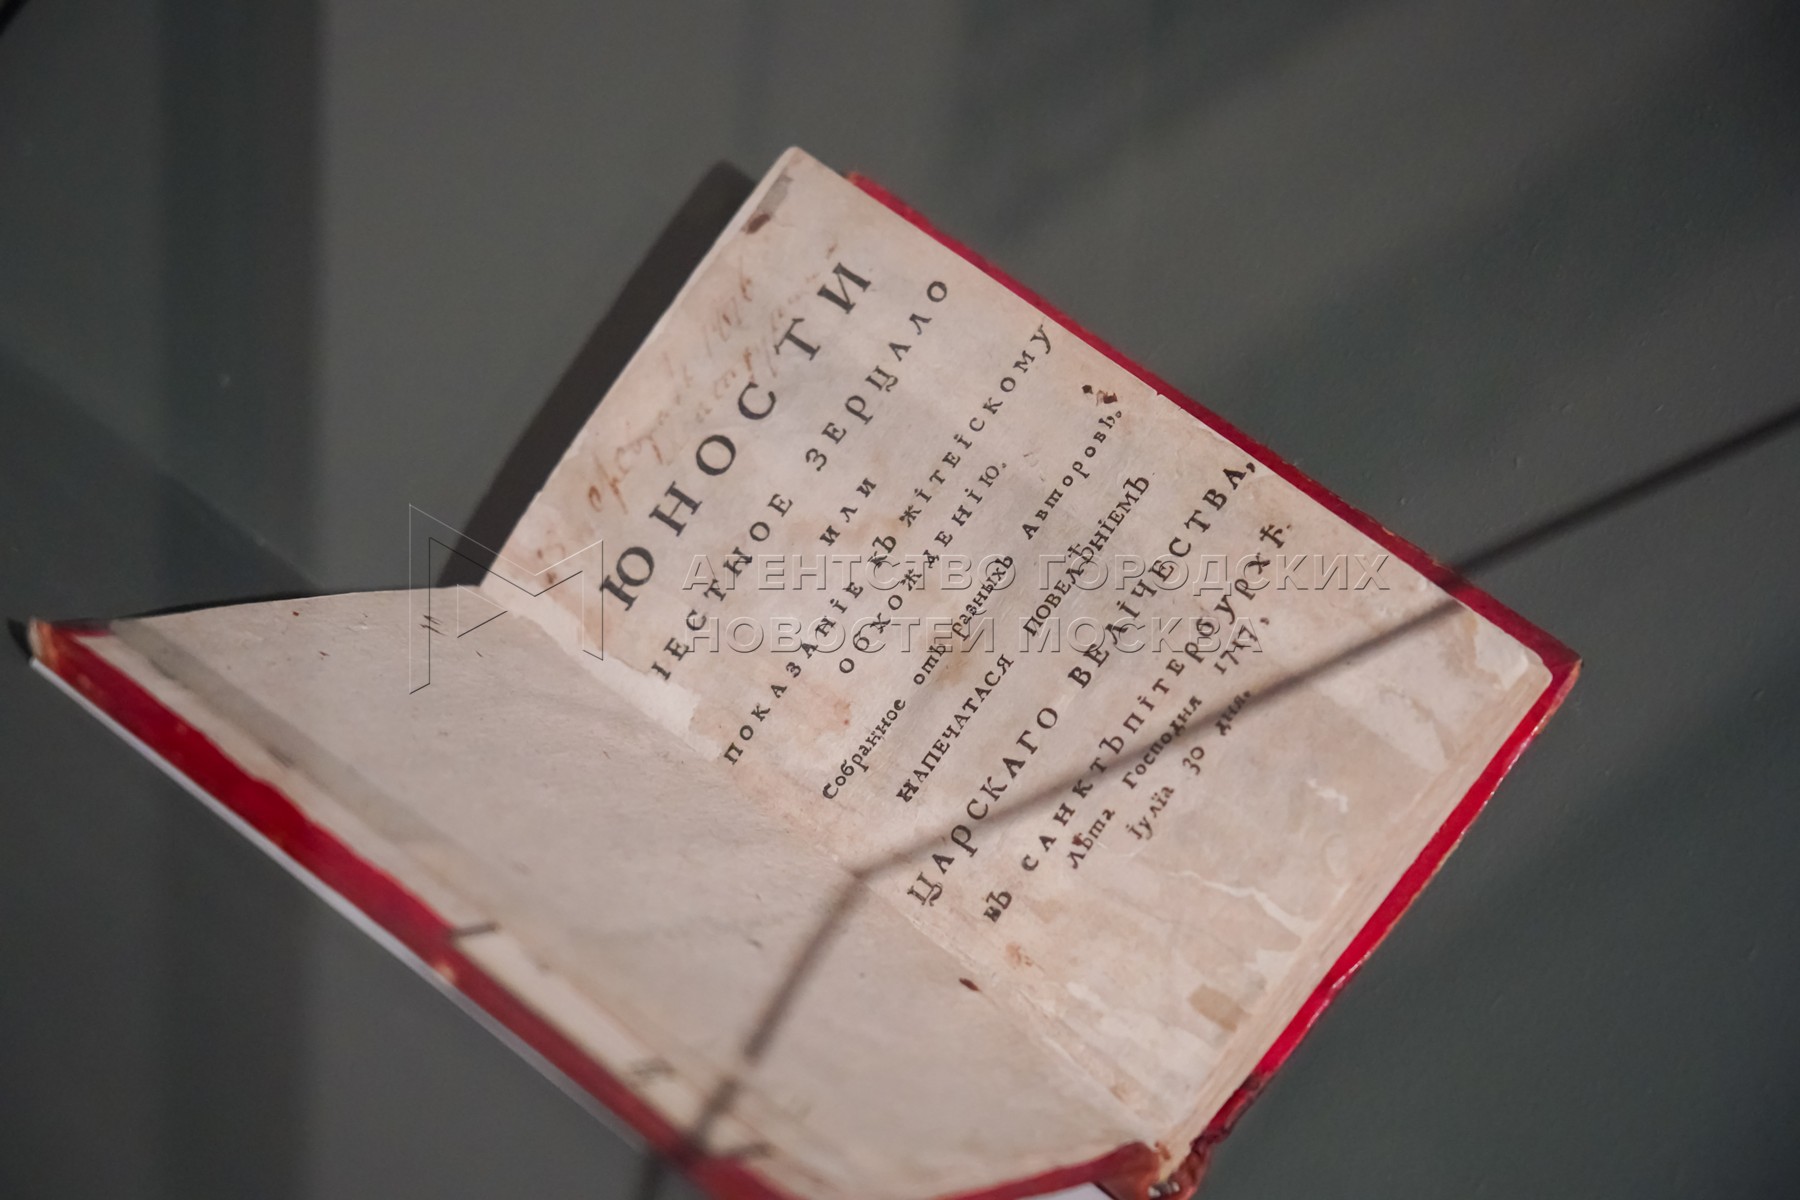 ЮНОСТИ
ЧЕСТНОЕ ЗЕРЦАЛО
ИЛИ
ПОКАЗАНİЕ КЪ ЖİТЕİСКОМУ
ОБХОЖДЕНİЮ.
Собранное отъ разныхъ Авторовъ.
НАПЕЧАТАСЯ ПОВЕЛѢНİЕМЪ
ЦАРСКАГО ВЕЛİЧЕСТВА,
ВЪ САНКТЪПİТЕРБУРХѢ.
Лѣта Господня 1717,
İулїа 30 дня.
АГЕНТСТВО ГОРОДСКИХ
НОВОСТЕЙ МОСКВА